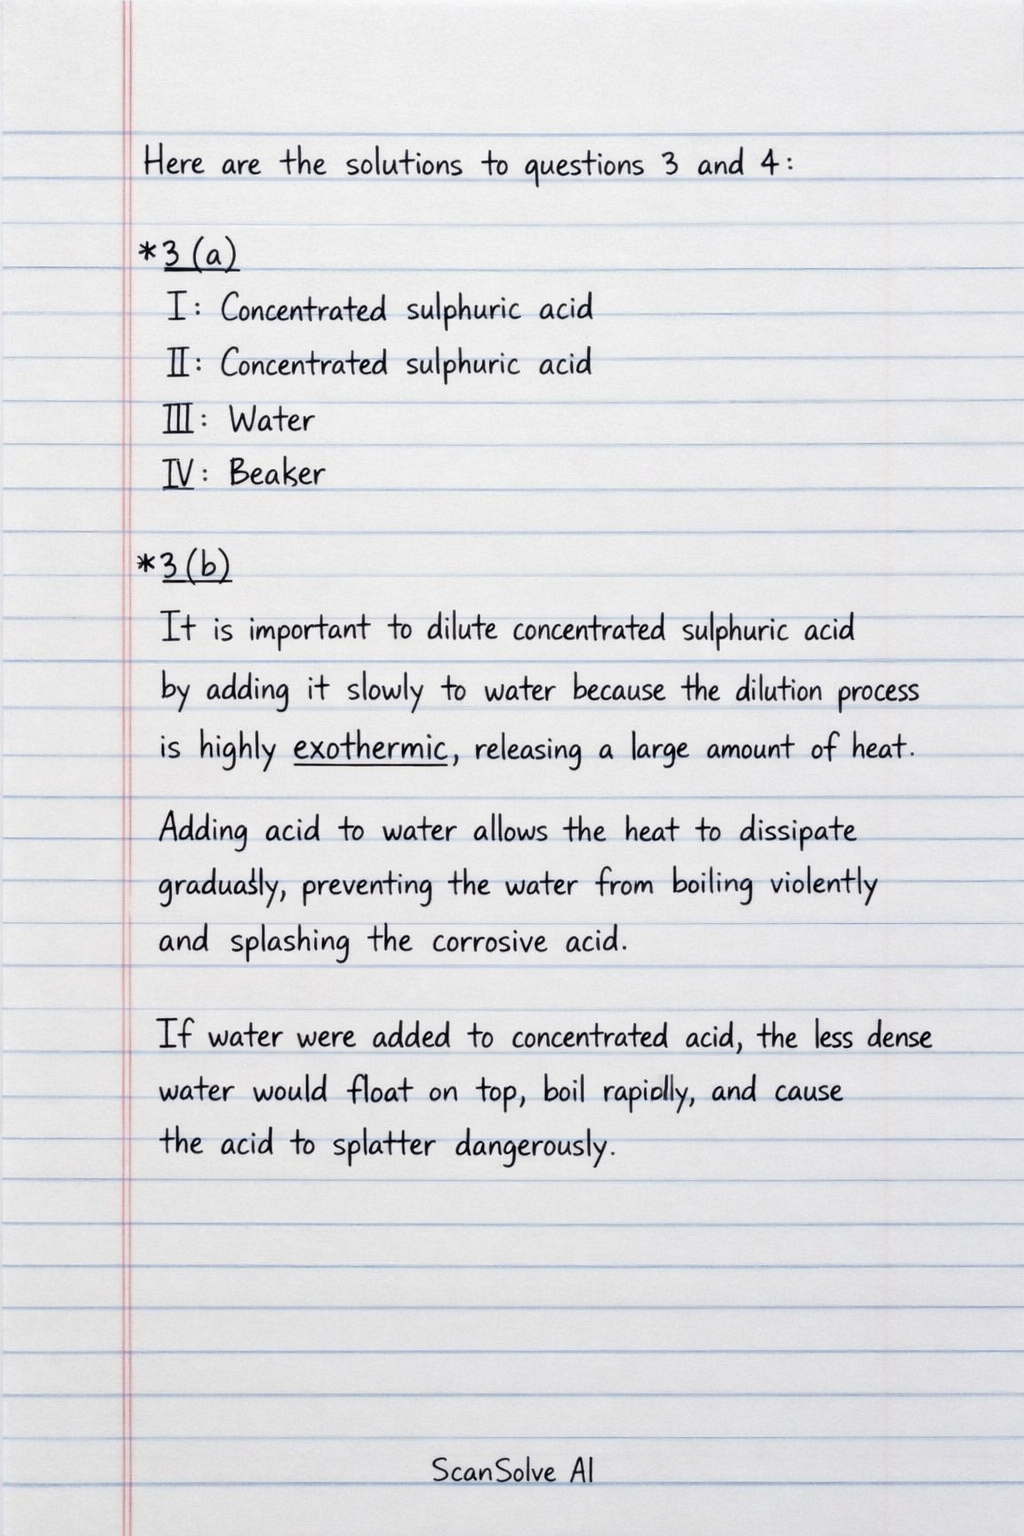 Here are the solutions to questions 3 and 4:
*3 (a)
I: Concentrated sulphuric acid
II: Concentrated sulphuric acid
III: Water
IV: Beaker
*3 (b)
It is important to dilute concentrated sulphuric acid
by adding it slowly to water because the dilution process
is highly exothermic, releasing a large amount of heat.
Adding acid to water allows the heat to dissipate
gradually, preventing the water from boiling violently
and splashing the corrosive acid.
If water were added to concentrated acid, the less dense
water would float on top, boil rapidly, and cause
the acid to splatter dangerously.
ScanSolve AI